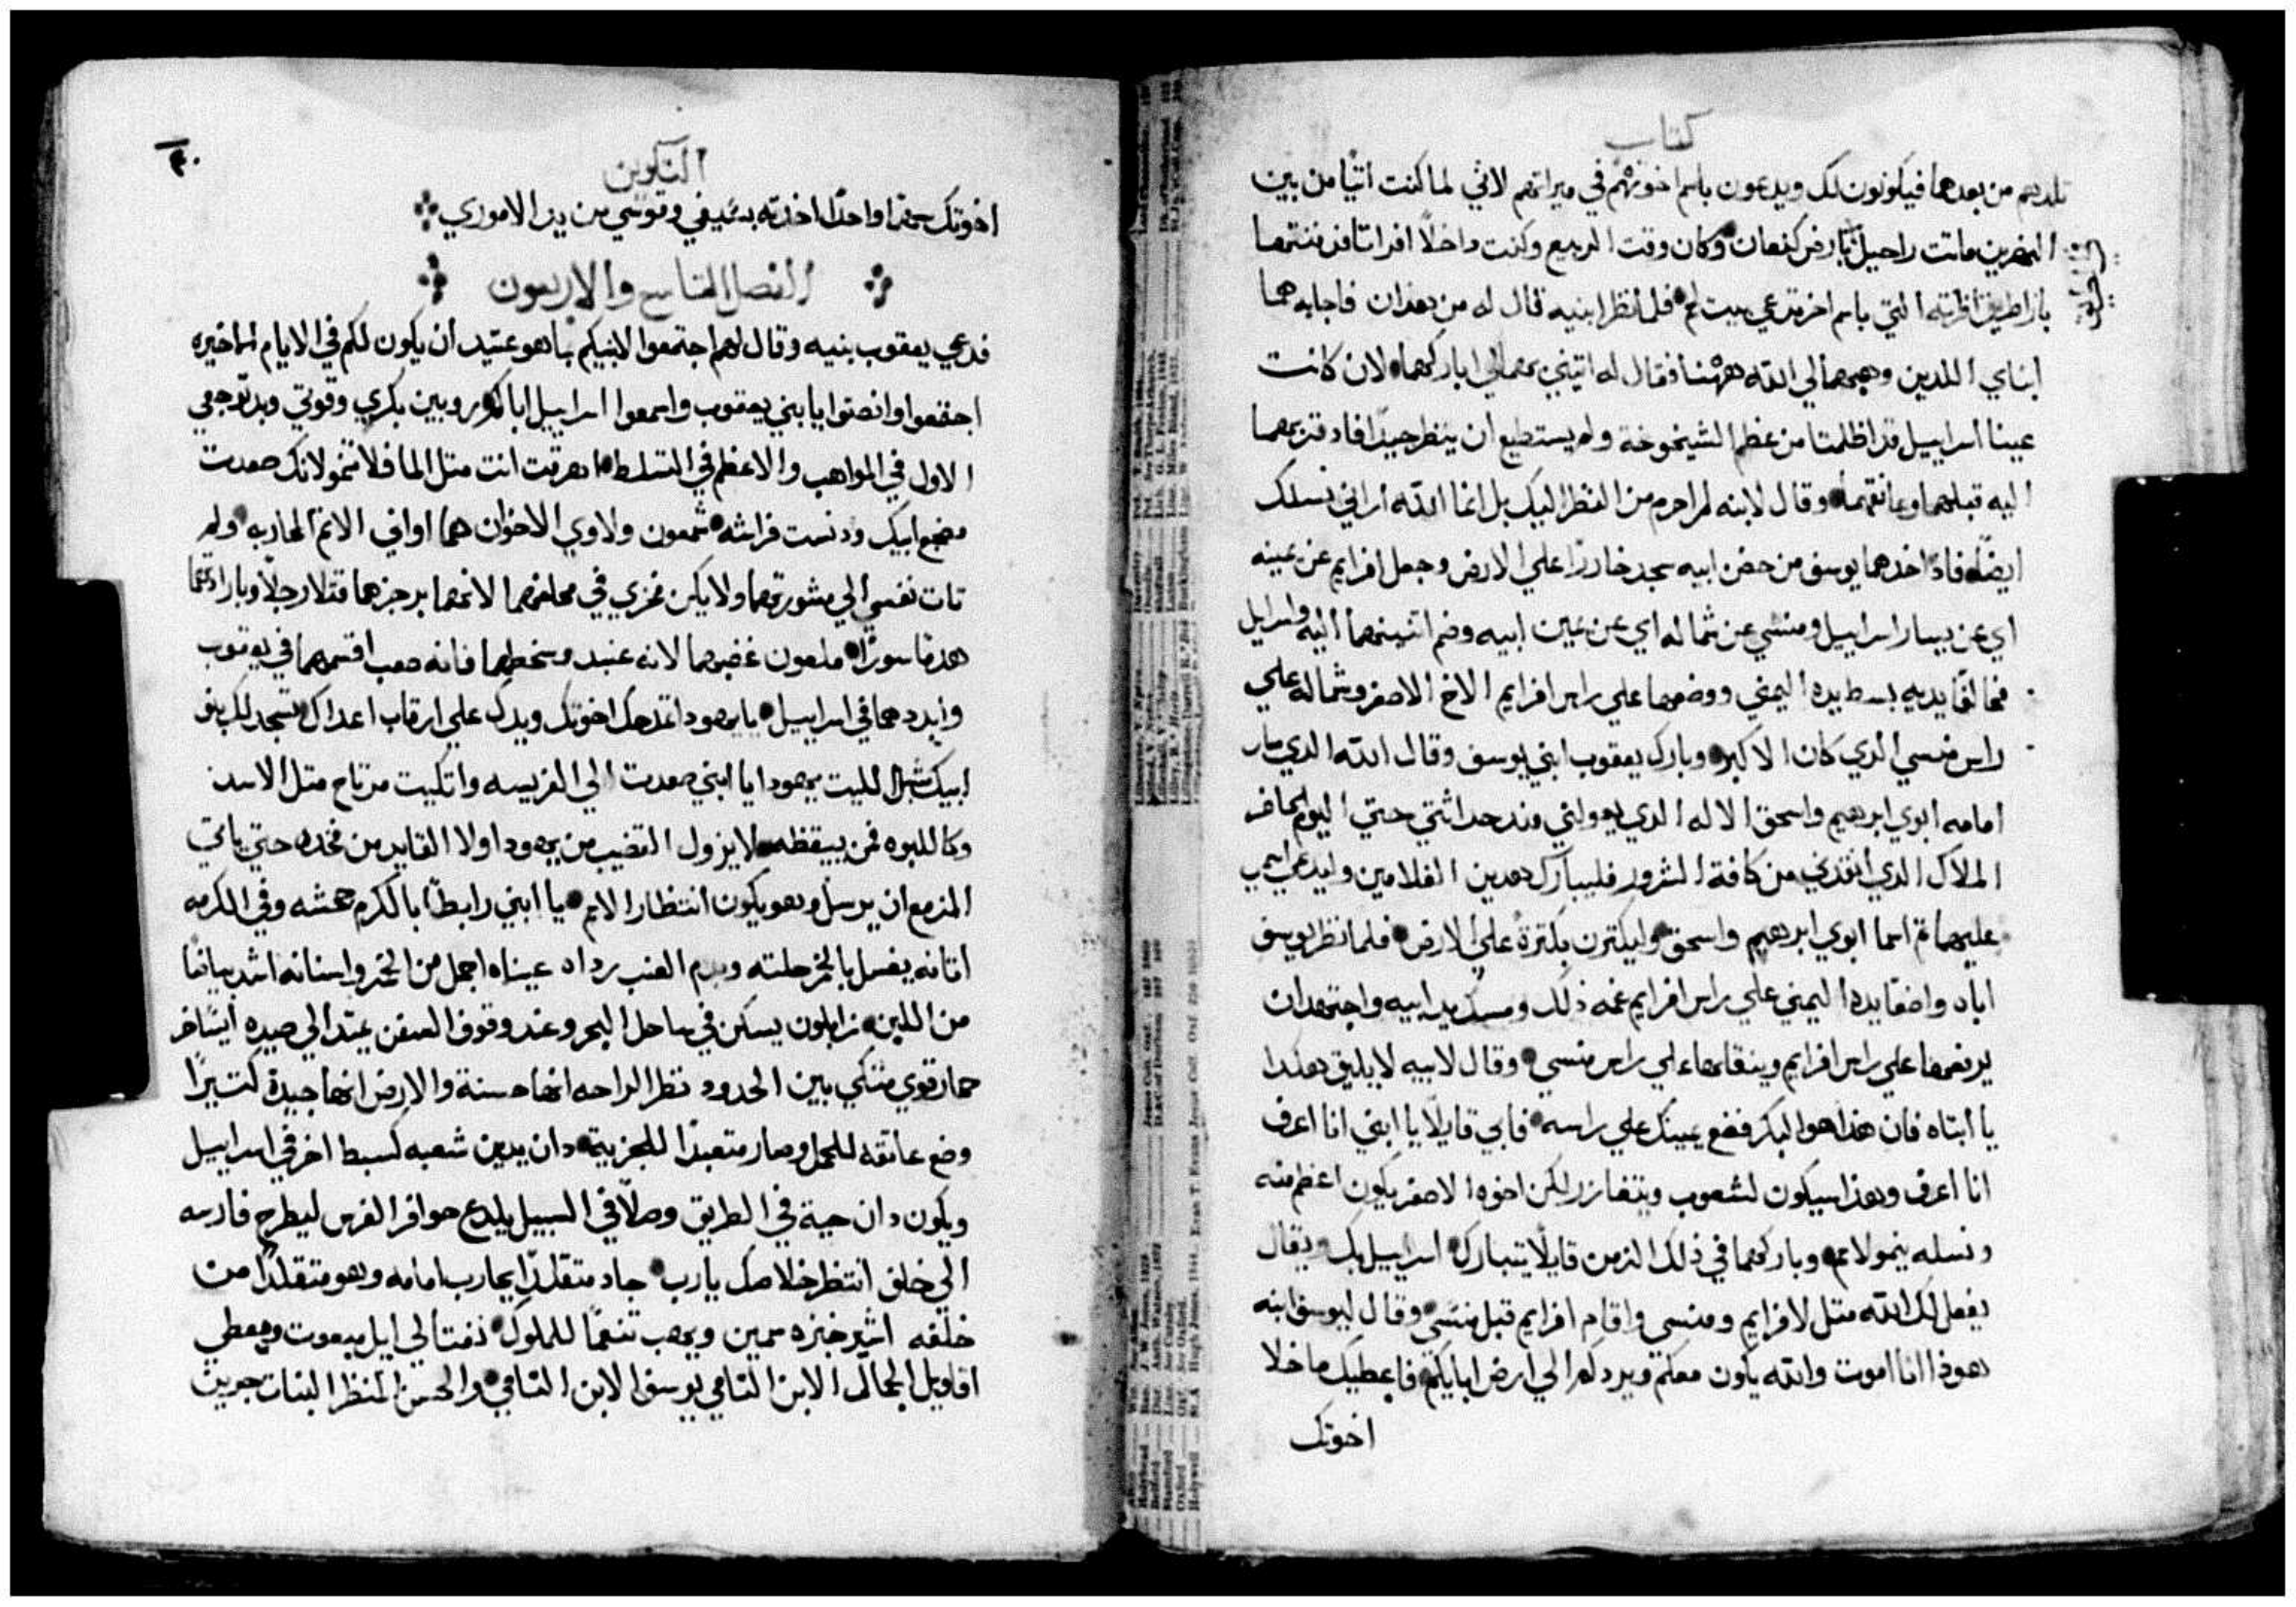 كتاب
تلدهم من بعدهما فيكونون لك ويدعون باسم اخوتهم في ميراتهم لاني لما كنت اتيا من بين
النهرين ماتت راحيل بارض كنعان وكان وقت الربيع وكنت داخلا افراتا فدفنتها
بازا طريق افراته التي باسم اخر تدعي بيت لحم فلما نظر ابنيه قال له من هدان فاجابه هما
ابناي اللدين وهبهما لي الله ههنا فقال له اتيني بهما الي اباركهما لان كانت
عينا اسراييل قد اظلمتا من عظم الشيخوخة ولم يستطيع ان ينظر جيدا فاد قربهما
اليه قبلهما وعانقهما وقال لابنه لم احرم من النظر اليك بل انما الله اراني نسلك
ايضا فاد اخدهما يوسف من حضن ابيه سجد خاررا علي الارض وجعل افرايم عن يمينه
اي عن يسار اسراييل ومنسي عن شماله اي عن يمين ابيه وضم اتنينهما اليه واسراييل
مخالفا يديه بسط يده اليمني ووضعها علي راس افرايم الاخ الاصغر وشماله علي
راس منسي الدي كان الاكبر وبارك يعقوب ابني يوسف وقال الله الدي سار
امامه ابوي ابرهيم واسحق الاله الدي يعولني مند حداثتي حتي اليوم الحاضر
الملاك الدي انقدني من كافة الشرور فليبارك هدين الغلامين وليدعي اسمي
عليهما تم اسما ابوي ابرهيم واسحق وليكترن بكترة علي الارض فلما نظر يوسف
اباه واضعا يده اليمني علي راس افرايم غمه ذلك ومسك يد ابيه واجتهد ان
يرفعها علي راس افرايم وينقلها علي راس منسي وقال لابيه لا يليق هكدا
يا ابتاه فان هذا هو البكر فضع يمينك علي راسه فابي قايلا يا ابني انا اعرف
انا اعرف وهذا سيكون لشعوب ويتغازر لكن اخوه الاصغر يكون اعظم منه
ونسله ينمو لامم وباركهما في ذلك الزمن قايلا يتبارك اسراييل بك ويقال
يفعل لك الله متل لافرايم ومنسي واقام افرايم قبل منسي وقال ليوسف ابنه
هوذا انا اموت والله يكون معكم ويردكم الي ارض ابايكم فاعطيك ما خلا
اخوتك
التكوين
٤٠
اخوتك سهما واحدا اخدته بسيفي وقوسي من يد الاموري
الفصل التاسع والاربعون
فدعي يعقوب بنيه وقال لهم اجتمعوا لانبيكم بما هو عتيد ان يكون لكم في الايام الاخيره
اجتمعوا وانصتوا يا بني يعقوب واسمعوا اسراييل اباكم روبين بكري وقوتي وبدو توجعي
الاول في المواهب والاعظم في التسلط اهرقت انت متل الما فلا تنمو لانك صعدت
مضجع ابيك ودنست فراشه شمعون ولاوي الاخوان هما اواني الاتم المحاربه ولم
تات نفسي الي مشورتهما ولا يكن مجدي في محلفهما لانهما برجزهما قتلا رجلا وبارادتهما
هدما سورا ملعون غضبهما لانه عنيد وسخطهما فانه صعب اقسمهما في يعقوب
وابددهما في اسراييل يا يهودا تمدحك اخوتك ويدك علي ارقاب اعداك تسجد لك بنو
ابيك شبل الليت يهودا يا ابني صعدت الي الفريسه واتكيت مرتاح متل الاسد
وكاللبوه فمن ييقظه لا يزول القضيب من يهودا ولا القايد من فخده حتي ياتي
المزمع ان يرسل وهو يكون انتظار الامم يا ابني رابطا بالكرم جحشه وفي الكرمه
اتانه يغسل بالخمر حلته وبدم العنب رداه عيناه اجمل من الخمر واسنانه اشد بياضا
من اللبن زابلون يسكن في ساحل البحر وعند وقوف السفن يمتد الي صيده ايساخر
حمار قوي متكي بين الحدود نظر الراحه انها حسنة والارض انها جيدة كتيرا
وضع عاتقه للحمل وصار متعبدا للجزية دان يدين شعبه كسبط اخر في اسراييل
ويكون دان حية في الطريق وصلا في السبيل يلدع حوافر الفرس ليطرح فارسه
الي خلف انتظر خلاصك يارب جاد متقلدا يحارب امامه وهو متقلدا من
خلفه اشير خبزه سمين ويهب تنعما للملوك نفتالي ايل مبعوت ومعطي
اقاويل الجمال الابن النامي يوسف الابن النامي والحسن المنظر البنات جوين